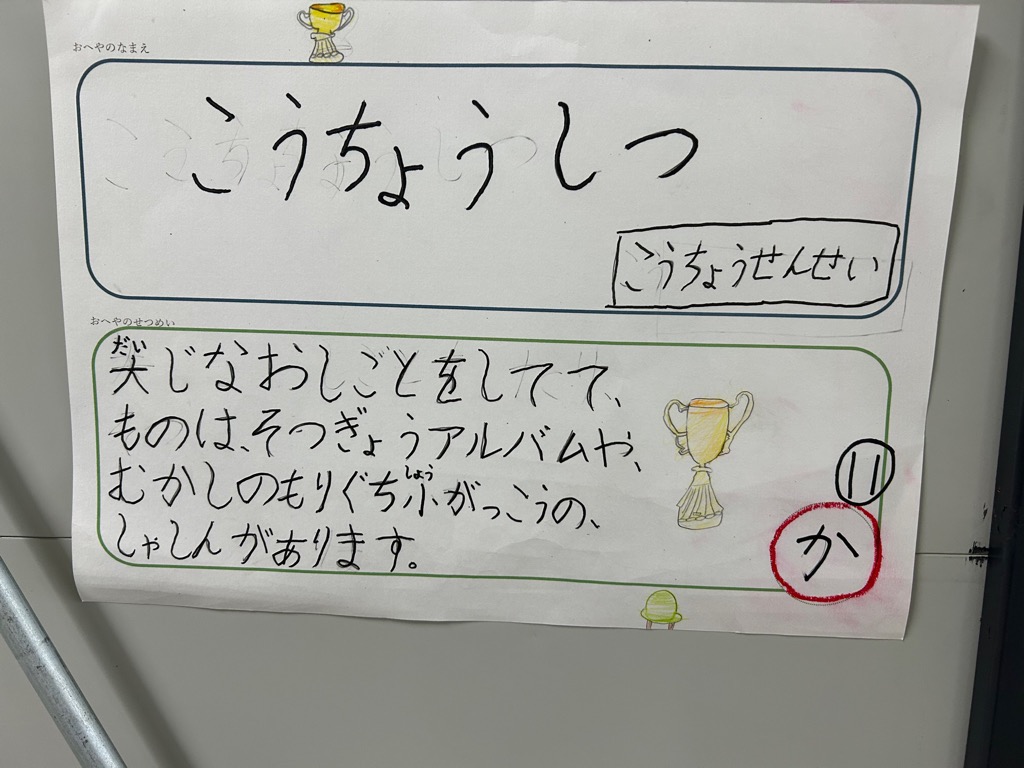 おへやのなまえ
こうちょうしつ
こうちょうせんせい
おへやのせつめい
だい
大じなおしごとをしてて、
ものは、そつぎょうアルバムや、
しょう
むかしのもりぐち小がっこうの、
しゃしんがあります。
11
か